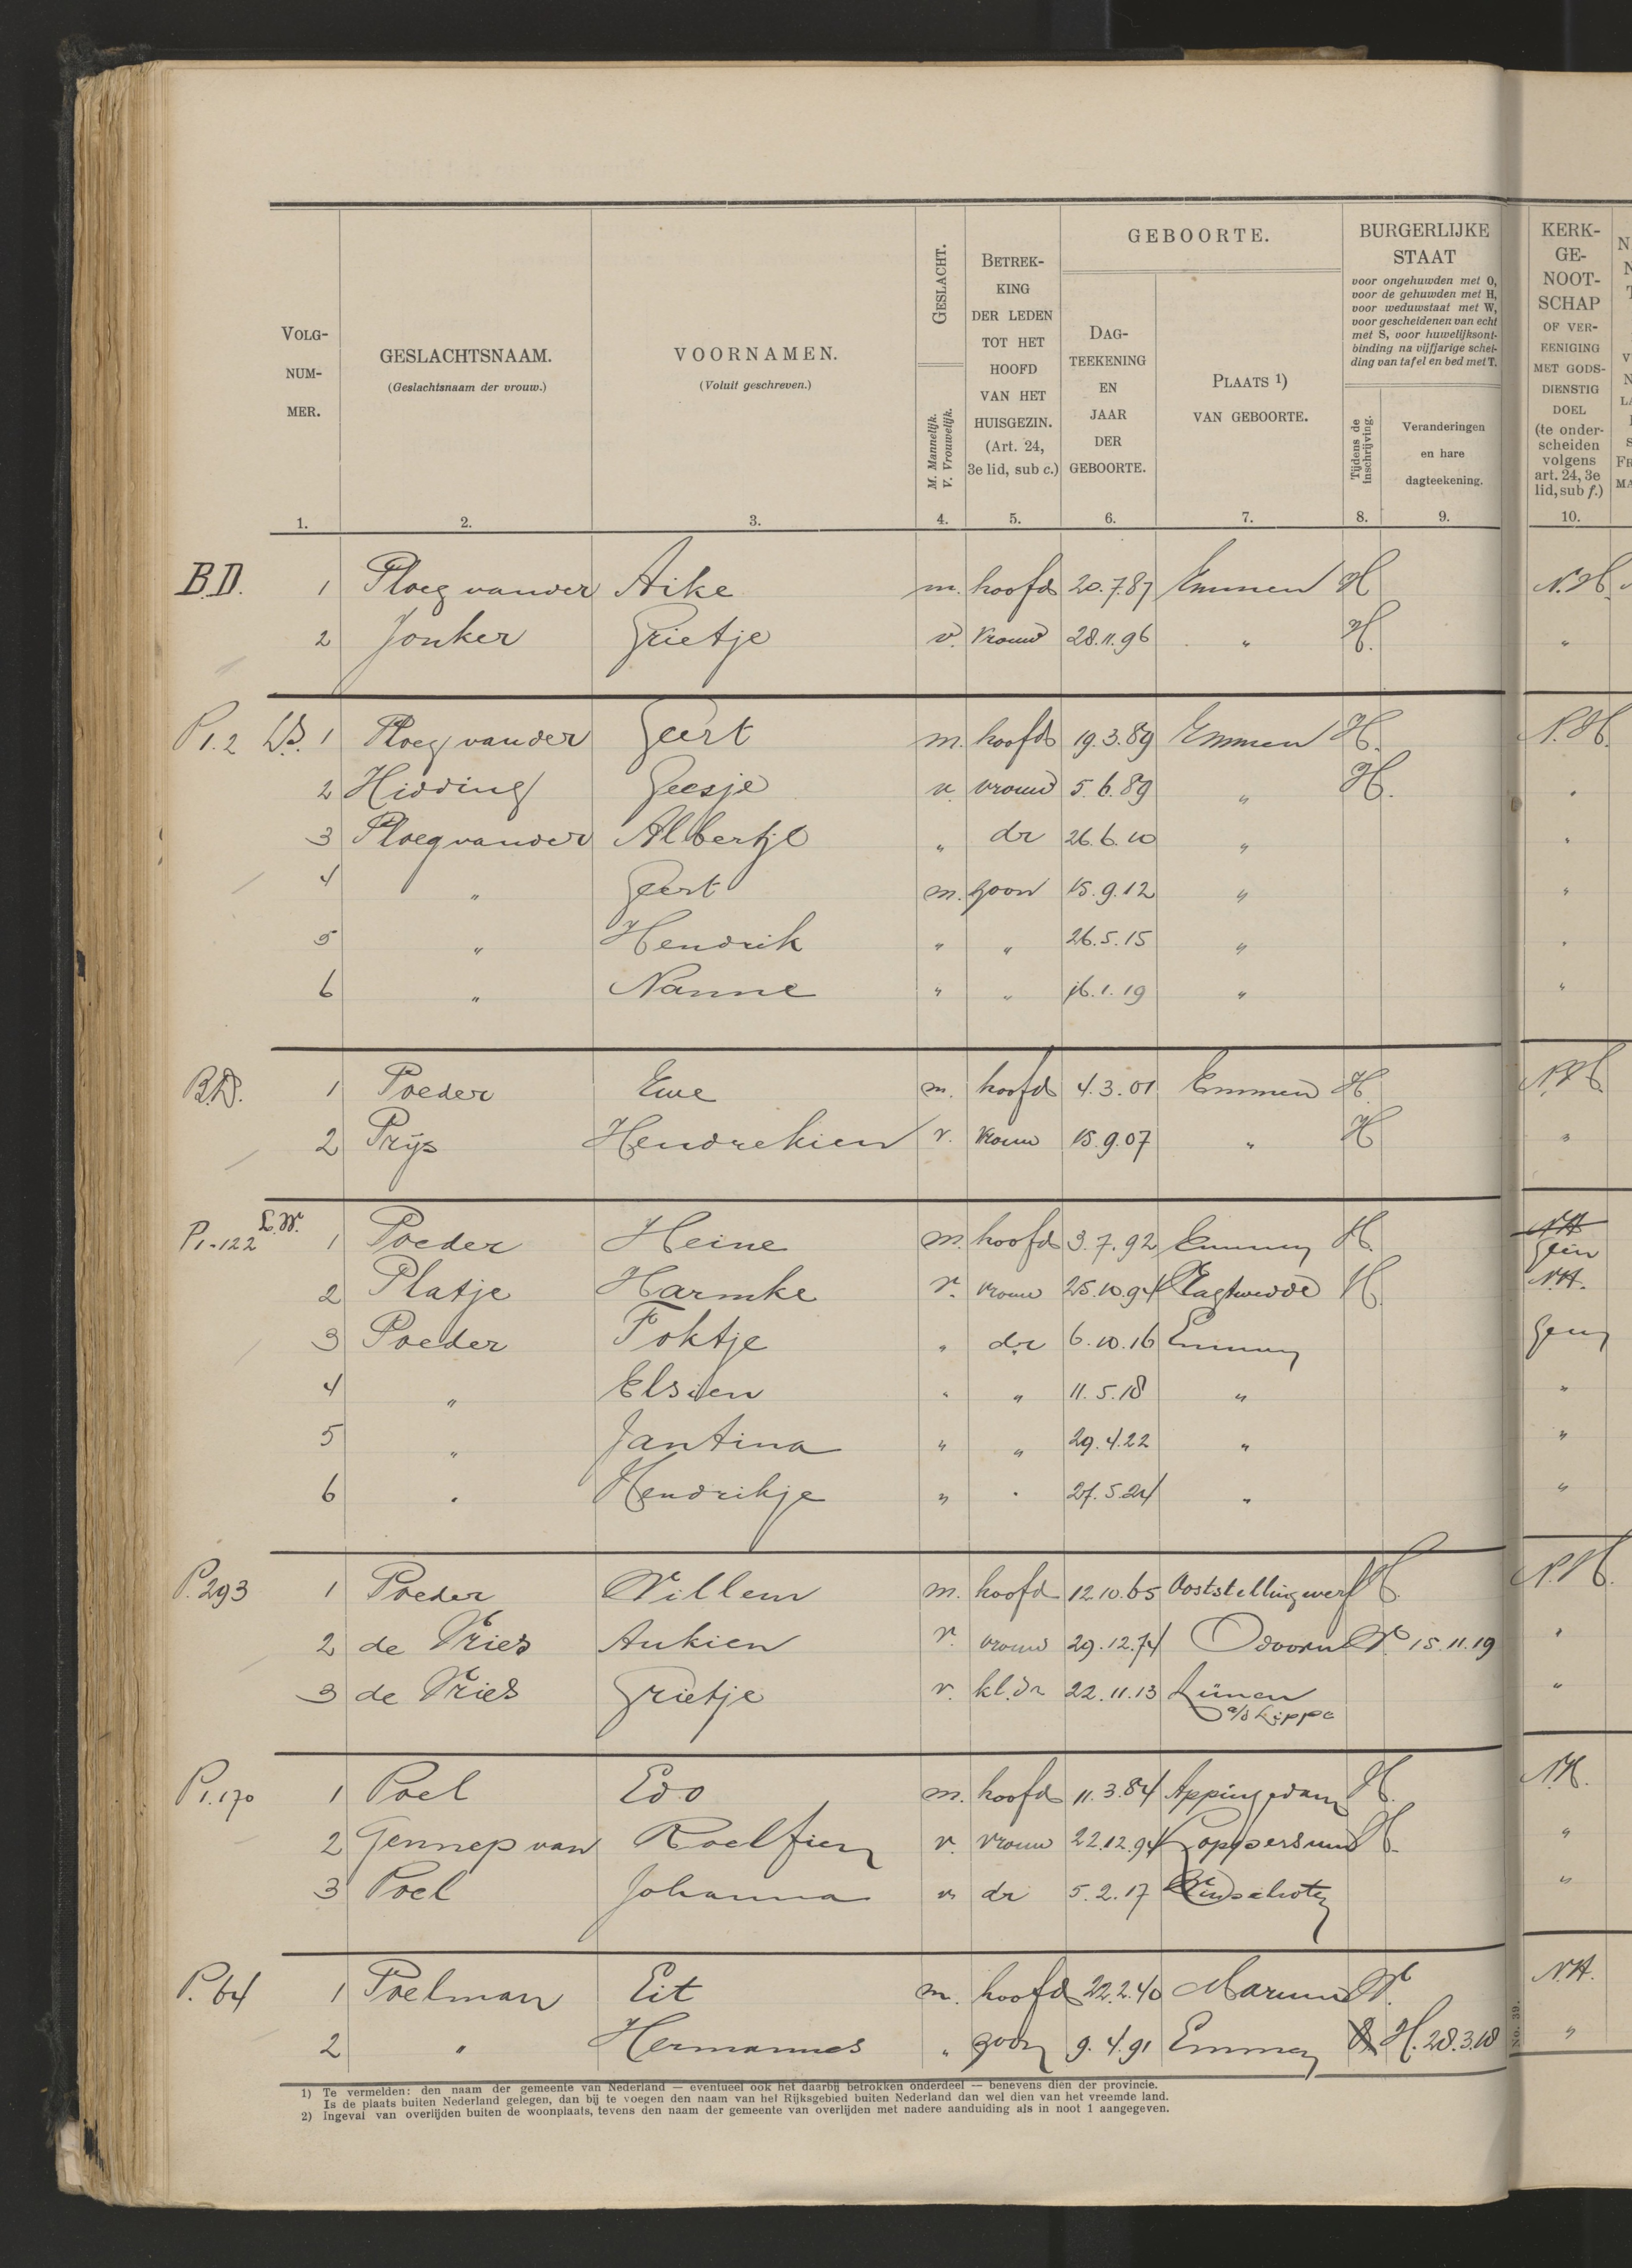 VOLG-
NUM-
MER.
1.
GESLACHTSNAAM.
(Geslachtsnaam der vrouw.)
2.
VOORNAMEN.
(Voluit geschreven.)
3.
GESLACHT.
M. Mannelijk.
V. Vrouwelijk.
4.
BETREK-
KING
DER LEDEN
TOT HET
HOOFD
VAN HET
HUISGEZIN.
(Art. 24,
3e lid, sub c.)
5.
GEBOORTE.
DAG-
TEEKENING
EN
JAAR
DER
GEBOORTE.
6.
PLAATS 1)
VAN GEBOORTE.
7.
BURGERLIJKE
STAAT
voor ongehuwden met O,
voor de gehuwden met H,
voor weduwstaat met W,
voor gescheidenen van echt
met S, voor huwelijksont-
binding na vijfjarige schei-
ding van tafel en bed met T.
Tijdens de
inschrijving.
8.
Veranderingen
en hare
dagteekening.
9.
KERK-
GE-
NOOT-
SCHAP
OF VER-
EENIGING
MET GODS-
DIENSTIG
DOEL
(te onder-
scheiden
volgens
art. 24, 3e
lid, sub f.)
10.
B.D. 1 Ploeg van der Aike m. hoofd 20.7.87 Emmen H N.H.
2 Jonker Grietje v. vrouw 28.11.96 " H. "
P1.2 1 Ploeg van der Geert m. hoofd 19.3.89 Emmen H. N.H.
2 Hidding Geesje v. vrouw 5.6.89 " H. "
3 Ploeg van der Albertje " dr 26.6.10 " "
4 " Geert m. zoon 15.9.12 " "
5 " Hendrik " " 26.5.15 " "
6 " Nanne " " 16.1.19 " "
B.D. 1 Poeder Ewe m. hoofd 4.3.01 Emmen H. N.H.
2 Prijs Hendrekien v. vrouw 15.9.07 " H "
P1-122 L.W. 1 Poeder Heine m. hoofd 3.7.92 Emmen H. N.H.
geen
2 Platje Harmke v. vrouw 25.10.94 Vlagtwedde H. N.H.
3 Poeder Foktje " dr 6.10.16 Emmen geen
4 " Elsien " " 11.5.18 " "
5 " Jantina " " 29.4.22 " "
6 " Hendrikje " " 27.5.24 " "
P.293 1 Poeder Willem m. hoofd 12.10.65 Ooststellingwerf H. N.H.
2 de Vries Aukien v. vrouw 29.12.74 Odoorn W. 15.11.19 "
3 de Vries Grietje v. kl.dr 22.11.13 Lünen "
a/d Lippe
P1.170 1 Poel Edo m. hoofd 11.3.84 Appingedam H. N.H.
2 Gennep van Roelfien v. vrouw 22.12.94 Loppersum H. "
3 Poel Johanna " dr 5.2.17 "
P.64 1 Poelman Eit m. hoofd 22.2.40 Marum W. N.H.
2 " Hermannes " zoon 9.4.91 Emmen H. 28.3.18 "
No. 39.
1) Te vermelden: den naam der gemeente van Nederland — eventueel ook het daarbij betrokken onderdeel — benevens dien der provincie.
Is de plaats buiten Nederland gelegen, dan bij te voegen den naam van het Rijksgebied buiten Nederland dan wel dien van het vreemde land.
2) Ingeval van overlijden buiten de woonplaats, tevens den naam der gemeente van overlijden met nadere aanduiding als in noot 1 aangegeven.